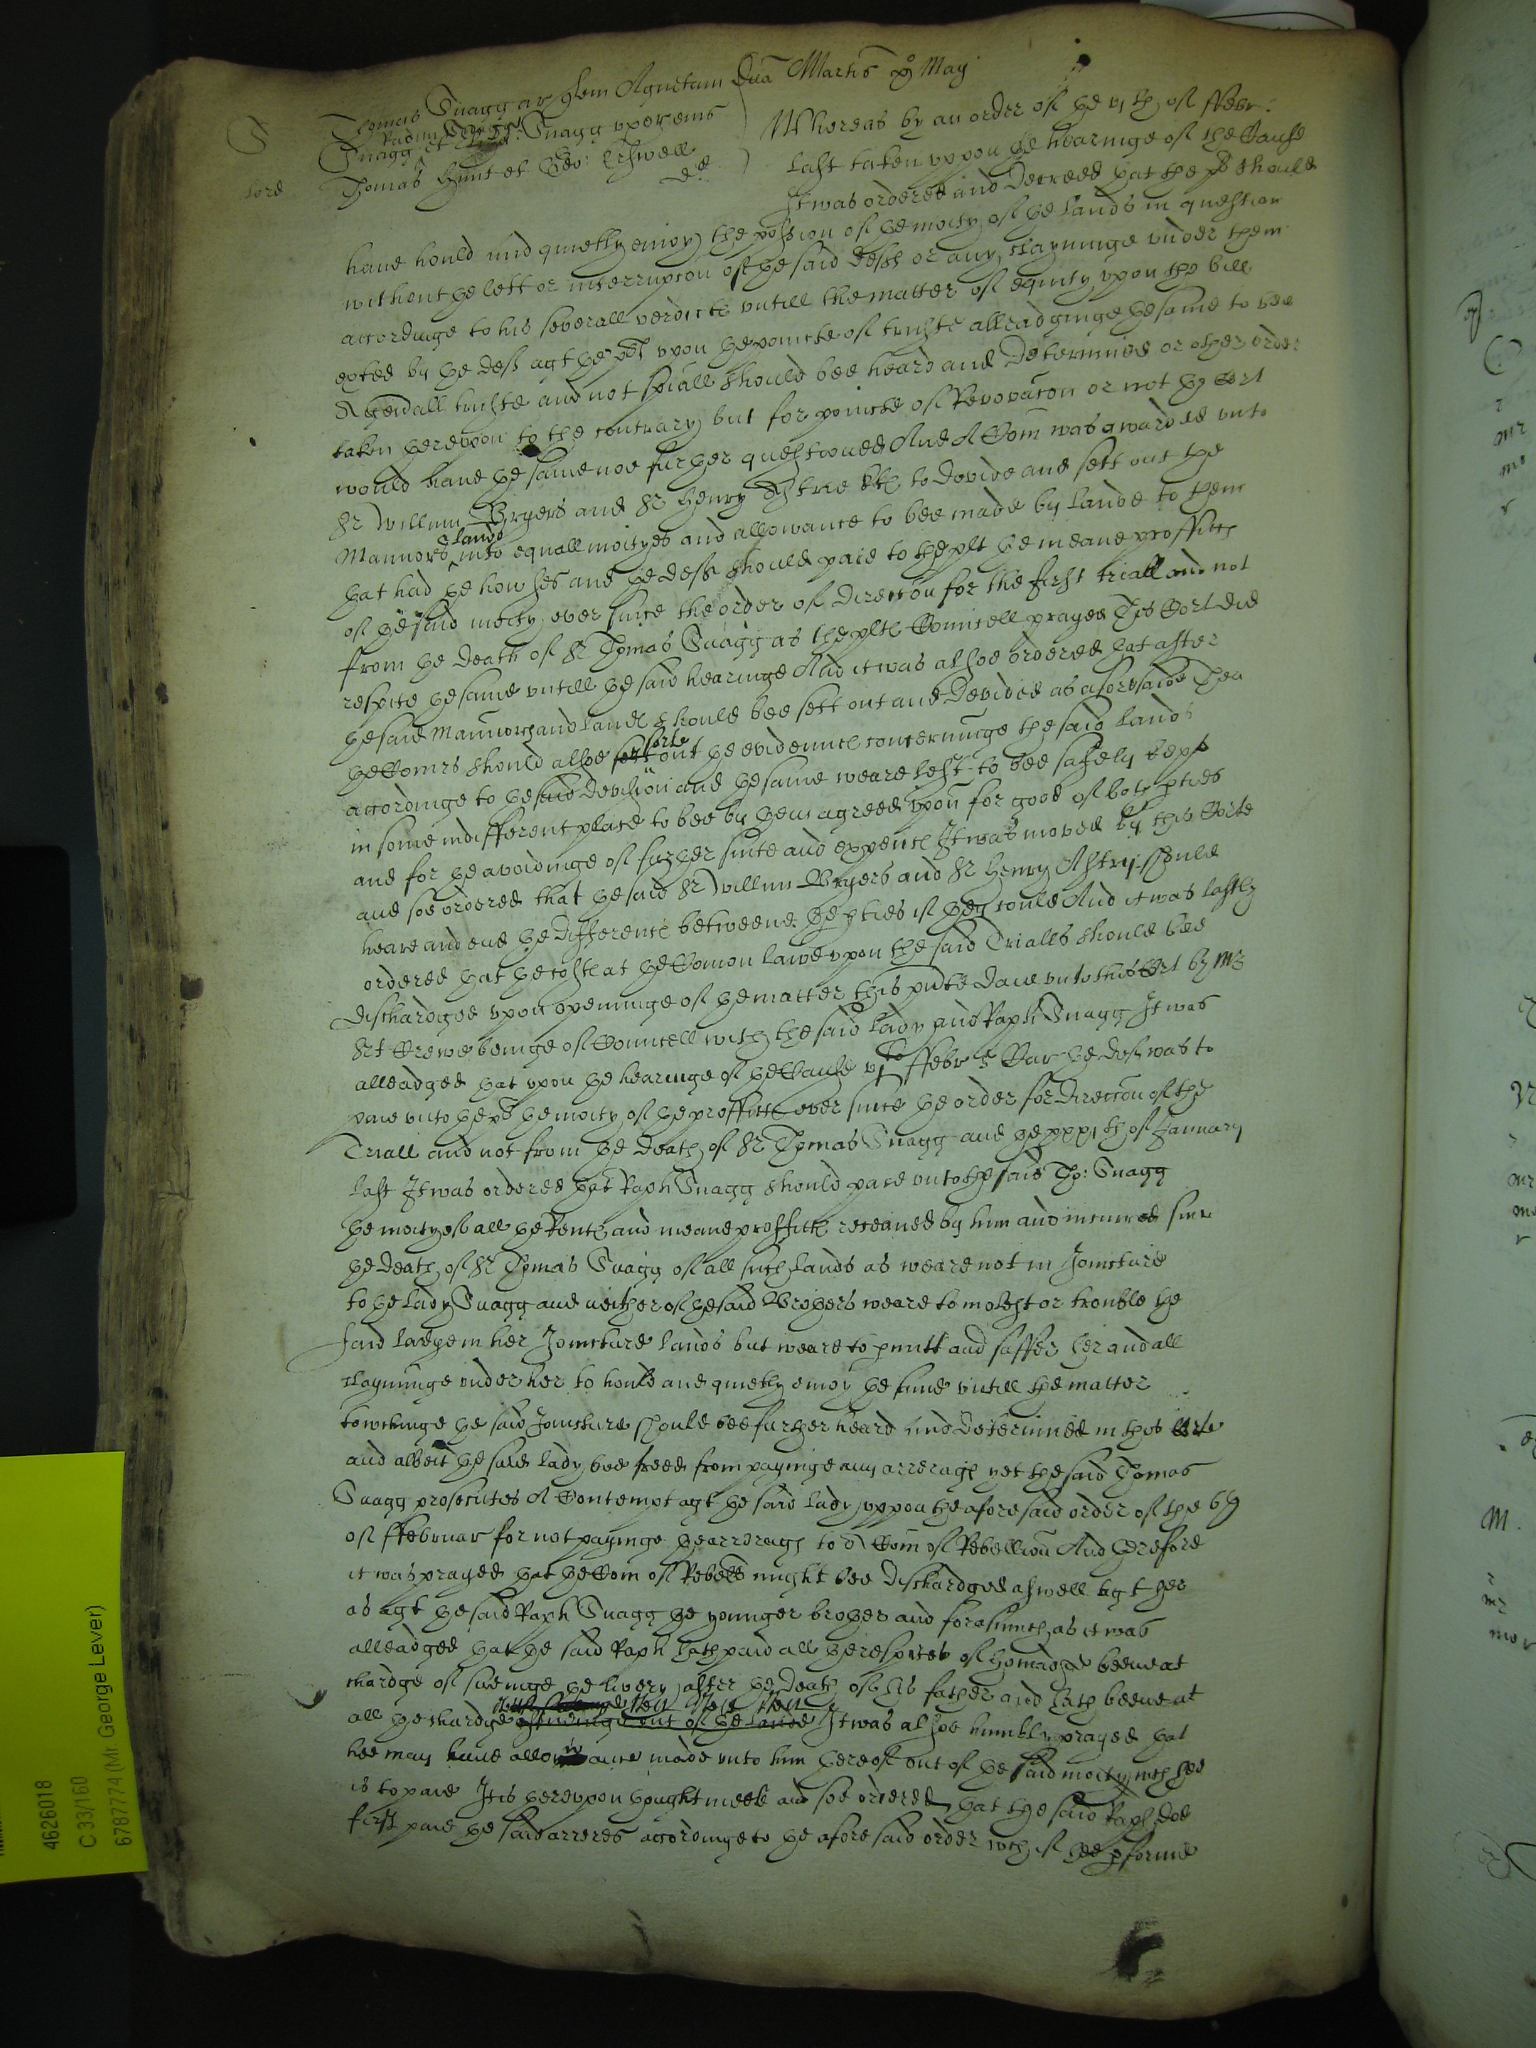 Thomas Snagg ar q̄lem Agnetam Dīa Martis xº May
Snagg et Radūm Snagg Snagg vxor eius
Thomas Hunt et Geo: Ershwell dd
Whereas by an order of ye vjth of ffebr:
last taken vppon ye hearinge of the Cause
It was ordered and Decreed yat the plt should
haue hould and quietly enioy the possion of ye moity of ye lands in question
without ye lett or interrupcon of ye said Defts or any clayminge vnder them
accordinge to his severall verdicts vntill the matter of equity vpon the bill
exted by ye deft agt ye plt vpon ye pointe of truste alleadginge ye same to bee
A generall truste and not spiall should bee heard and Determined or other order
taken herevpon to the contrary but for pointe of Revocacon or not ye Cort
would haue ye same noe further questioned And A Com was awarded vnto
Sr Willm Bryers and Sr Henry Astrie kts to Devide and sett out the
Mannors lands into equall moityes and allowance to bee made by lande to them
yat had ye howses and ye defts should paie to the plt ye meane proffitts
of ye said moity ever since the order of direccon for the first triall and not
from ye death of Sr Thomas Snagg as the plts Councell prayed This Cort did
respite ye same vntill ye said hearinge And it was alsoe ordered yat after
ye said Mannors and lands should bee sett out and Devided as aforesaide Then
ye Comrs should alsoe sett sorte out ye evidences concerninge the said lands
accordinge to ye said Devision and ye same weare left to bee safely kept
in some indifferent place to bee by them agreed vpon for good of both pties
and for ye avoidinge of further suite and expence It was moved by this Corte
and soe ordered that ye said Sr Willm Bryers and Sr Henry Astry should
heare and end ye difference betweene ye pties if they could And it was lastly
ordered yat ye costs at ye Comon lawe vpon the said Trialls should bee
dischardged vpon openinge of ye matter this pnte daie vnto this Cort by Mr
Srt Crewe beinge of Councell with the said Lady and Raph Snagg It was
alleadged yat vpon ye hearinge of ye Cause vjto ffebr 5 Car ye deft was to
paie vnto ye plt ye moity of ye proffitts ever since ye order for direccon of the
Triall and not from ye death of Sr Thomas Snagg and ye xxxjth of January
last It was ordered yat Raph Snagg should paie vnto the said Tho: Snagg
ye moity of all ye Rents and meane proffitts receaued by him and incurred since
ye death of Sr Thomas Snagg of all such lands as weare not in Jointure
to ye Lady Snagg and neither of ye said Brothers weare to molest or trouble ye
said Ladye in her Jointure lands but weare to pmitt and suffer her and all
clayminge vnder her to hould and quietly enioy ye same vntill the matter
towchinge ye said Jointure should bee further heard and determined in this Corte
and albeit ye said Lady bee freed from payinge any arrerags yet the said Thomas
Snagg prosecutes A Contempt agt ye said Lady vppon the aforesaid order of the 6th
of ffebruar for not payinge ye arrerags to A Com of Rebellion And therefore
it was prayed yat ye Com of Rebell might bee dischardged aswell agt her
as agt ye said Raph Snagg ye younger brother and forasmuch as it was
alleadged yat ye said Raph hath paid all ye respites of homadge beene at
chardge of sueinge ye livery after ye death of his father and hath beene at
all ye chardge It was alsoe humbly prayed yat
hee may haue allowance made vnto him thereof out of ye said moity wch hee
is to paie It is herevpon thought meete and soe ordered yat the said Raph doe
first paie ye said arreres accordinge to ye aforesaid order wch if hee pforme
4626018
C 33/160
6787774 (Mr George Lever)